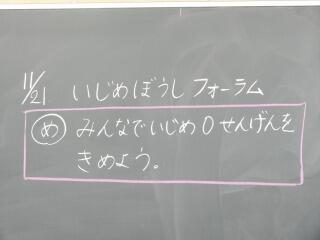 11/21 いじめぼうしフォーラム
め みんなでいじめ0せんげんを
きめよう。